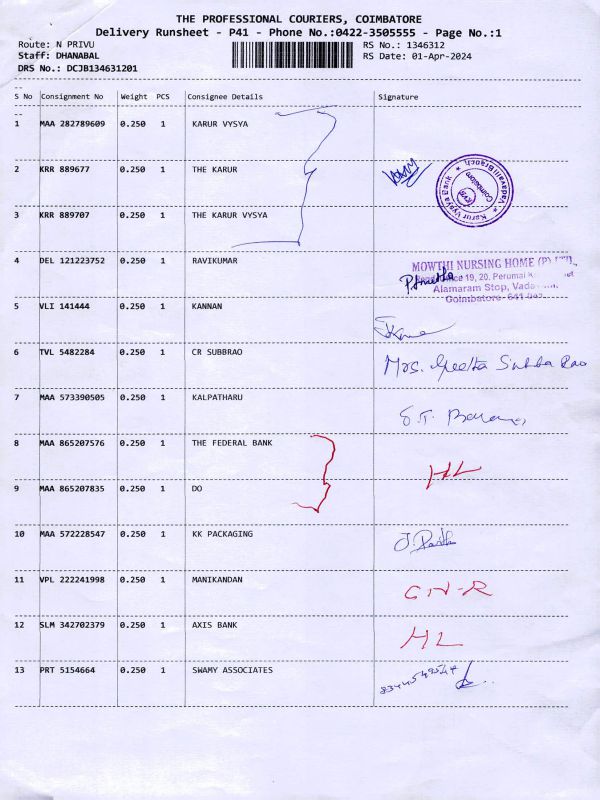 THE PROFESSIONAL COURIERS, COIMBATORE
Delivery Runsheet - P41 - Phone No.:0422-3505555 - Page No.:1
Route: N PRIVU RS No.: 1346312
Staff: DHANABAL RS Date: 01-Apr-2024
DRS No.: DCJB134631201
S No Consignment No Weight PCS Consignee Details Signature
1 MAA 282789609 0.250 1 KARUR VYSYA
2 KRR 889677 0.250 1 THE KARUR
Karur Vysya Bank Vadavalli Branch Coimbatore
3 KRR 889707 0.250 1 THE KARUR VYSYA
4 DEL 121223752 0.250 1 RAVIKUMAR
MOWTHI NURSING HOME (P)
19, 20, Perumal
Alamaram Stop,
Coimbatore
5 VLI 141444 0.250 1 KANNAN
6 TVL 5482284 0.250 1 CR SUBBRAO Mrs. Geetha Subba Rao
7 MAA 573390505 0.250 1 KALPATHARU
8 MAA 865207576 0.250 1 THE FEDERAL BANK HL
9 MAA 865207835 0.250 1 DO
10 MAA 572228547 0.250 1 KK PACKAGING
11 VPL 222241998 0.250 1 MANIKANDAN
12 SLM 342702379 0.250 1 AXIS BANK HL
13 PRT 5154664 0.250 1 SWAMY ASSOCIATES